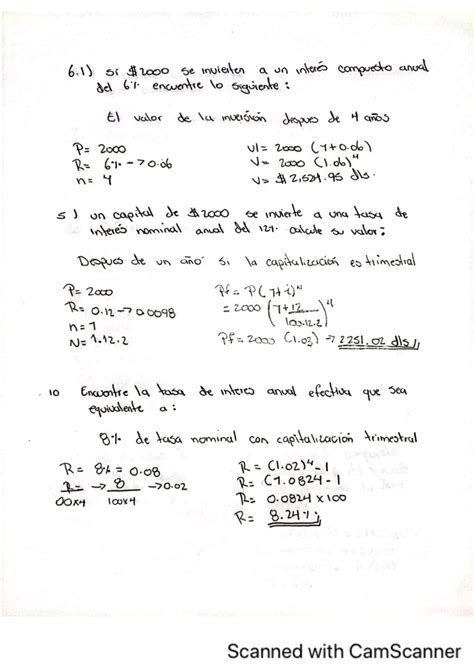 6.1) si $2000 se invierten a un interés compuesto anual
del 6% encuentre lo siguiente :
El valor de la inversión despues de 4 años
P= 2000
R= 6% -> 0.06
n= 4
V1= 2000 (1+0.06)
V= 2000 (1.06)^4
V= $2,524.95 dls.
5 ) un capital de $2000 se invierte a una tasa de
interés nominal anual del 12% calcule su valor:
Despues de un año si la capitalización es trimestral
P= 2000
R= 0.12 ->
n= 1
N= 1.12.2
Pf = P(1+i)^4
= 2000
Pf= 2000 (1.03) -> 2251.02 dls
10 Encuentre la tasa de interes anual efectiva que sea
equivalente a :
8% de tasa nominal con capitalización trimestral
R= 8% = 0.08
R= -> 8 -> 0.02
00x4 100x4
R= (1.02)^4 -1
R= (1.0824 -1
R= 0.0824 x 100
R= 8.24%
Scanned with CamScanner